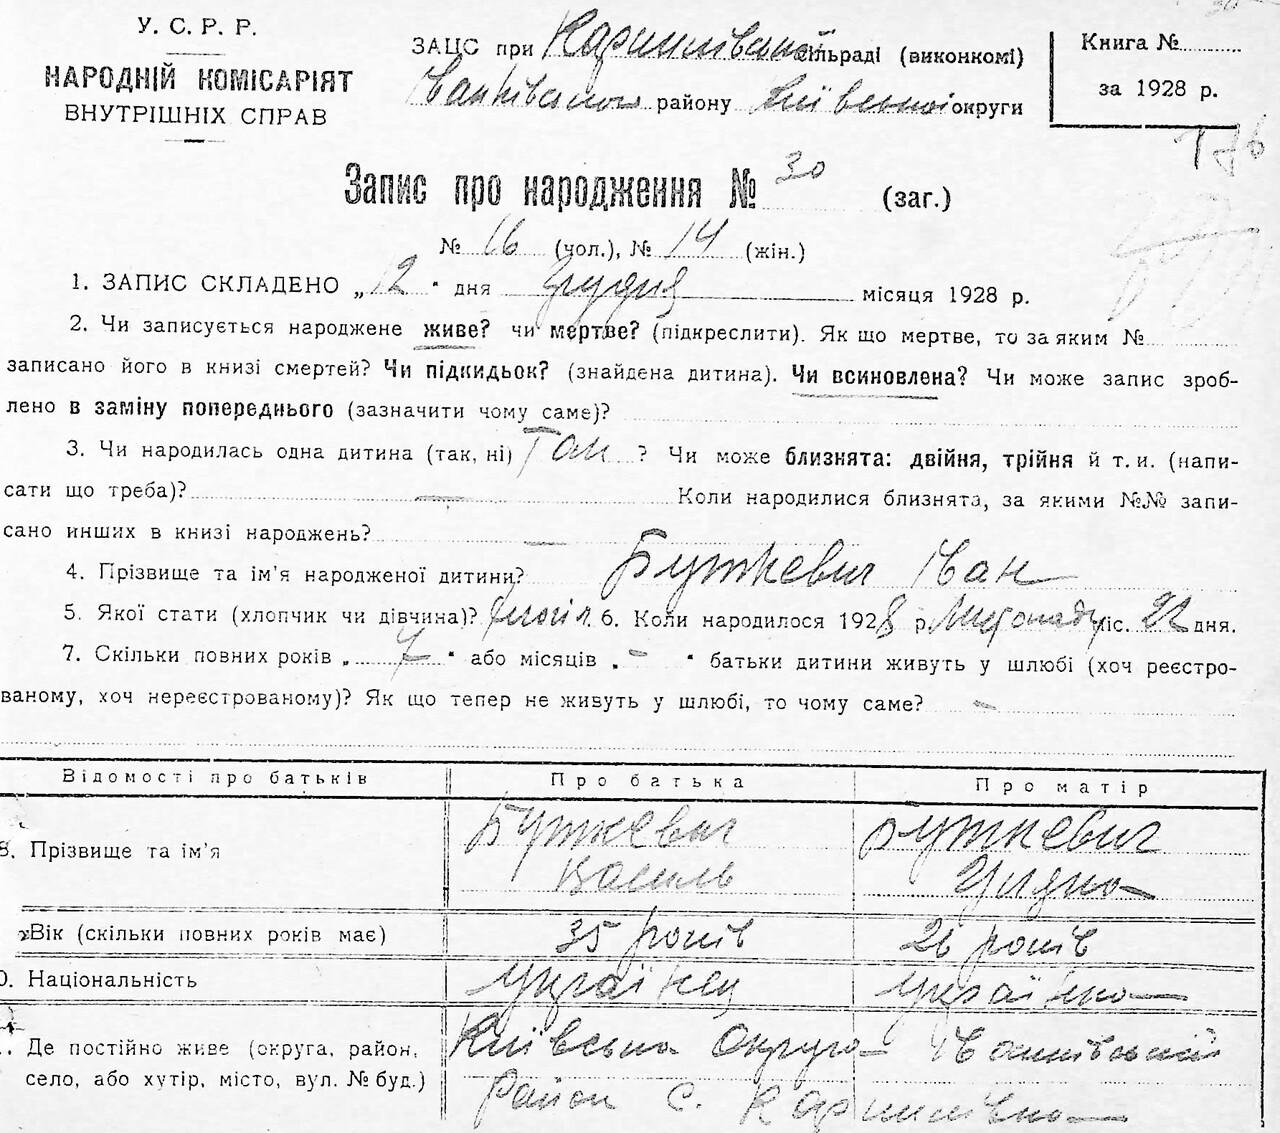 У. С. Р. Р.
НАРОДНІЙ КОМІСАРІЯТ
ВНУТРІШНІХ СПРАВ
ЗАЦС при сільраді (виконкомі)
Іванківському району Київської округи
Книга №
за 1928 р.
176
Запис про народження № 30 (заг.)
№ 16 (чол.), № 14 (жін.)
1. ЗАПИС СКЛАДЕНО „12" дня грудня місяця 1928 р.
2. Чи записується народжене живе? чи мертве? (підкреслити). Як що мертве, то за яким №
записано його в книзі смертей? Чи підкидьок? (знайдена дитина). Чи всиновлена? Чи може запис зроб-
лено в заміну попереднього (зазначити чому саме)?
3. Чи народилась одна дитина (так, ні) Так ? Чи може близнята: двійня, трійня й т. и. (напи-
сати що треба)? — Коли народилися близнята, за якими №№ запи-
сано инших в книзі народжень? —
4. Прізвище та ім'я народженої дитини? Буткевич Іван
5. Якої стати (хлопчик чи дівчина)? 6. Коли народилося 1928 р. Листопаду міс. 22 дня.
7. Скільки повних років „ 7 " або місяців „ - " батьки дитини живуть у шлюбі (хоч реєстро-
ваному, хоч нереєстрованому)? Як що тепер не живуть у шлюбі, то чому саме? —
Відомості про батьків Про батька Про матір
8. Прізвище та ім'я Буткевич Василь Буткевич
Вік (скільки повних років має) 35 років 26 років
0. Національність Українец Українка
Де постійно живе (округа, район, село, або хутір, місто, вул. № буд.) Київська Округа Іванківський
район с.